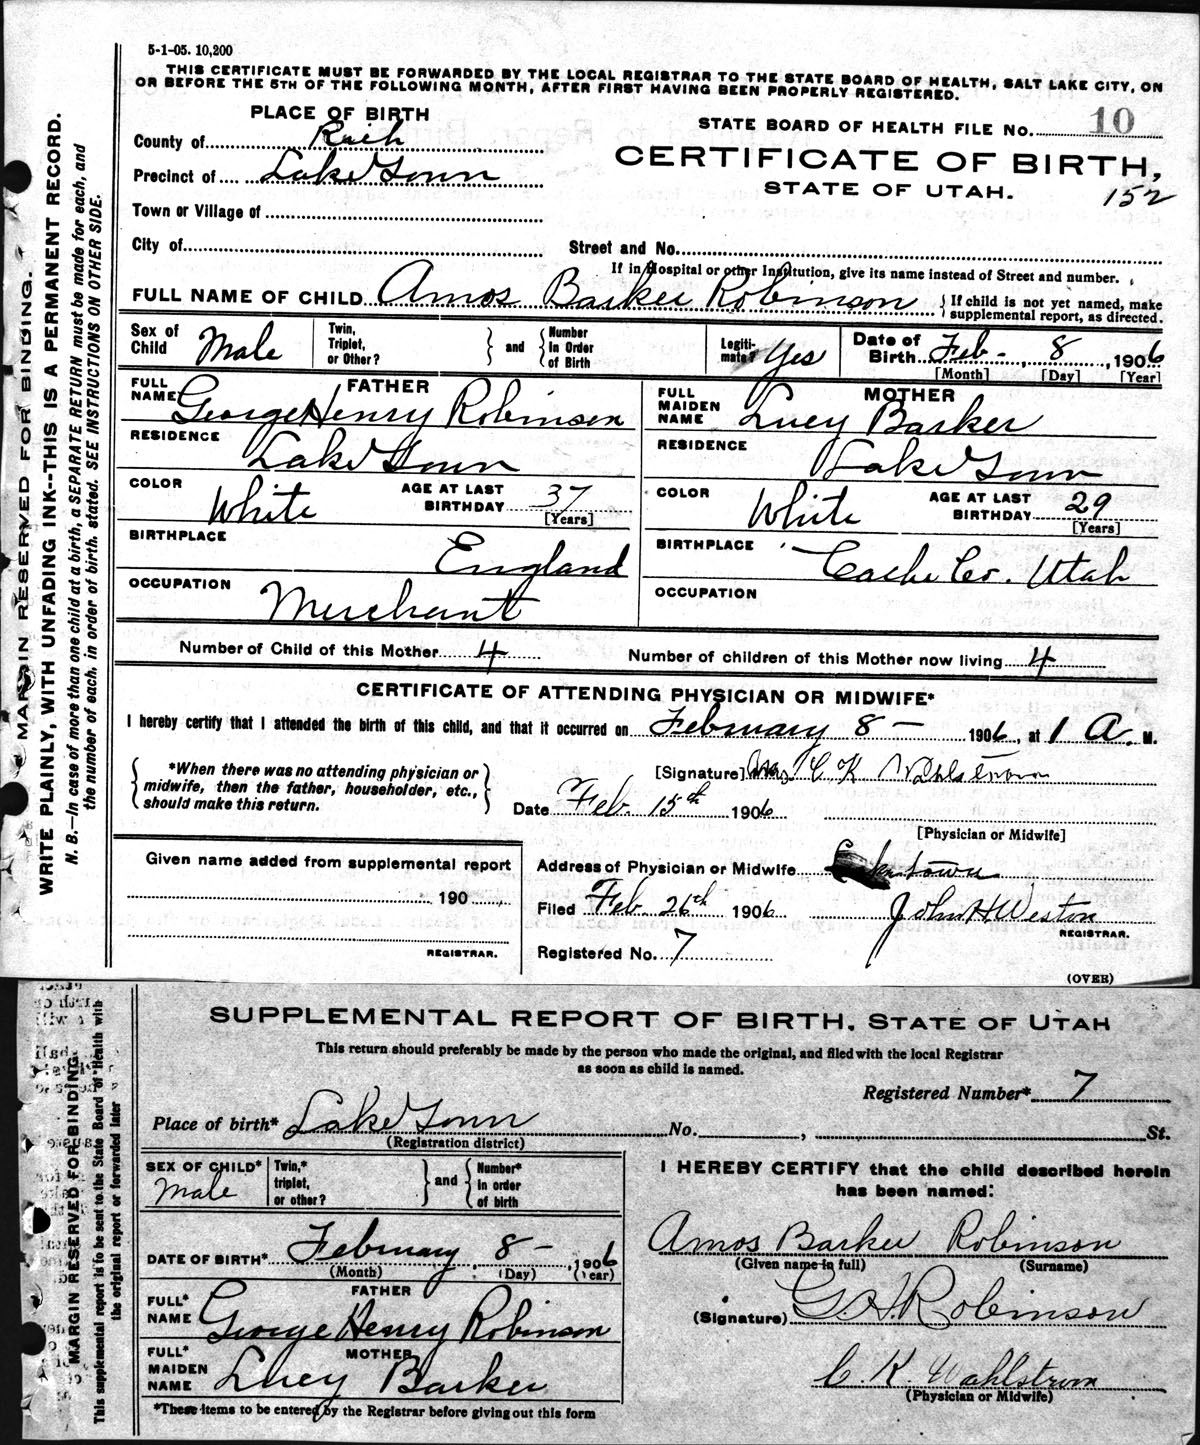 5-1-05. 10,200
THIS CERTIFICATE MUST BE FORWARDED BY THE LOCAL REGISTRAR TO THE STATE BOARD OF HEALTH, SALT LAKE CITY, ON
OR BEFORE THE 5TH OF THE FOLLOWING MONTH, AFTER FIRST HAVING BEEN PROPERLY REGISTERED.
PLACE OF BIRTH
County of Rich
Precinct of Lake Town
Town or Village of
City of
STATE BOARD OF HEALTH FILE No. 10
CERTIFICATE OF BIRTH,
STATE OF UTAH.
152
Street and No.
If in Hospital or other Institution, give its name instead of Street and number.
FULL NAME OF CHILD Amos Barker Robinson { If child is not yet named, make
supplemental report, as directed.
Sex of Child Male
Twin, Triplet, or Other? } and { Number In Order of Birth
Legitimate? Yes
Date of Birth Feb- 8, 1906
[Month] [Day] [Year]
FATHER
FULL NAME George Henry Robinson
RESIDENCE Lake Town
COLOR White AGE AT LAST BIRTHDAY 37
[Years]
BIRTHPLACE England
OCCUPATION Merchant
MOTHER
FULL MAIDEN NAME Lucy Barker
RESIDENCE Lake Town
COLOR White AGE AT LAST BIRTHDAY 29
[Years]
BIRTHPLACE Cache Co. Utah
OCCUPATION
Number of Child of this Mother 4 Number of children of this Mother now living 4
CERTIFICATE OF ATTENDING PHYSICIAN OR MIDWIFE*
I hereby certify that I attended the birth of this child, and that it occurred on February 8 - 1906, at 1 A. M.
{ *When there was no attending physician or
midwife, then the father, householder, etc.,
should make this return. }
[Signature] Mrs C K Wahlstrom
Date Feb. 15th 1906
[Physician or Midwife]
Given name added from supplemental report
190
REGISTRAR.
Address of Physician or Midwife Laketown
Filed Feb 26th 1906 John H Weston
REGISTRAR.
Registered No. 7
(OVER)
MARGIN RESERVED FOR BINDING.
WRITE PLAINLY, WITH UNFADING INK--THIS IS A PERMANENT RECORD.
N. B.—In case of more than one child at a birth, a SEPARATE RETURN must be made for each, and
the number of each, in order of birth, stated. SEE INSTRUCTIONS ON OTHER SIDE.
SUPPLEMENTAL REPORT OF BIRTH, STATE OF UTAH
This return should preferably be made by the person who made the original, and filed with the local Registrar
as soon as child is named.
Registered Number* 7
Place of birth* Lake Town No. , St.
(Registration district)
SEX OF CHILD* Male
Twin,* triplet, or other? } and { Number* In order of birth
DATE OF BIRTH* February 8 - , 1906
(Month) (Day) (Year)
FATHER
FULL* NAME George Henry Robinson
MOTHER
FULL* MAIDEN NAME Lucy Barker
*These items to be entered by the Registrar before giving out this form
I HEREBY CERTIFY that the child described herein
has been named:
Amos Barker Robinson
(Given name in full) (Surname)
(Signature) G H Robinson
C. K. Wahlstrom
(Physician or Midwife)
MARGIN RESERVED FOR BINDING.
This supplemental report is to be sent to the State Board of Health with
the original report or forwarded later